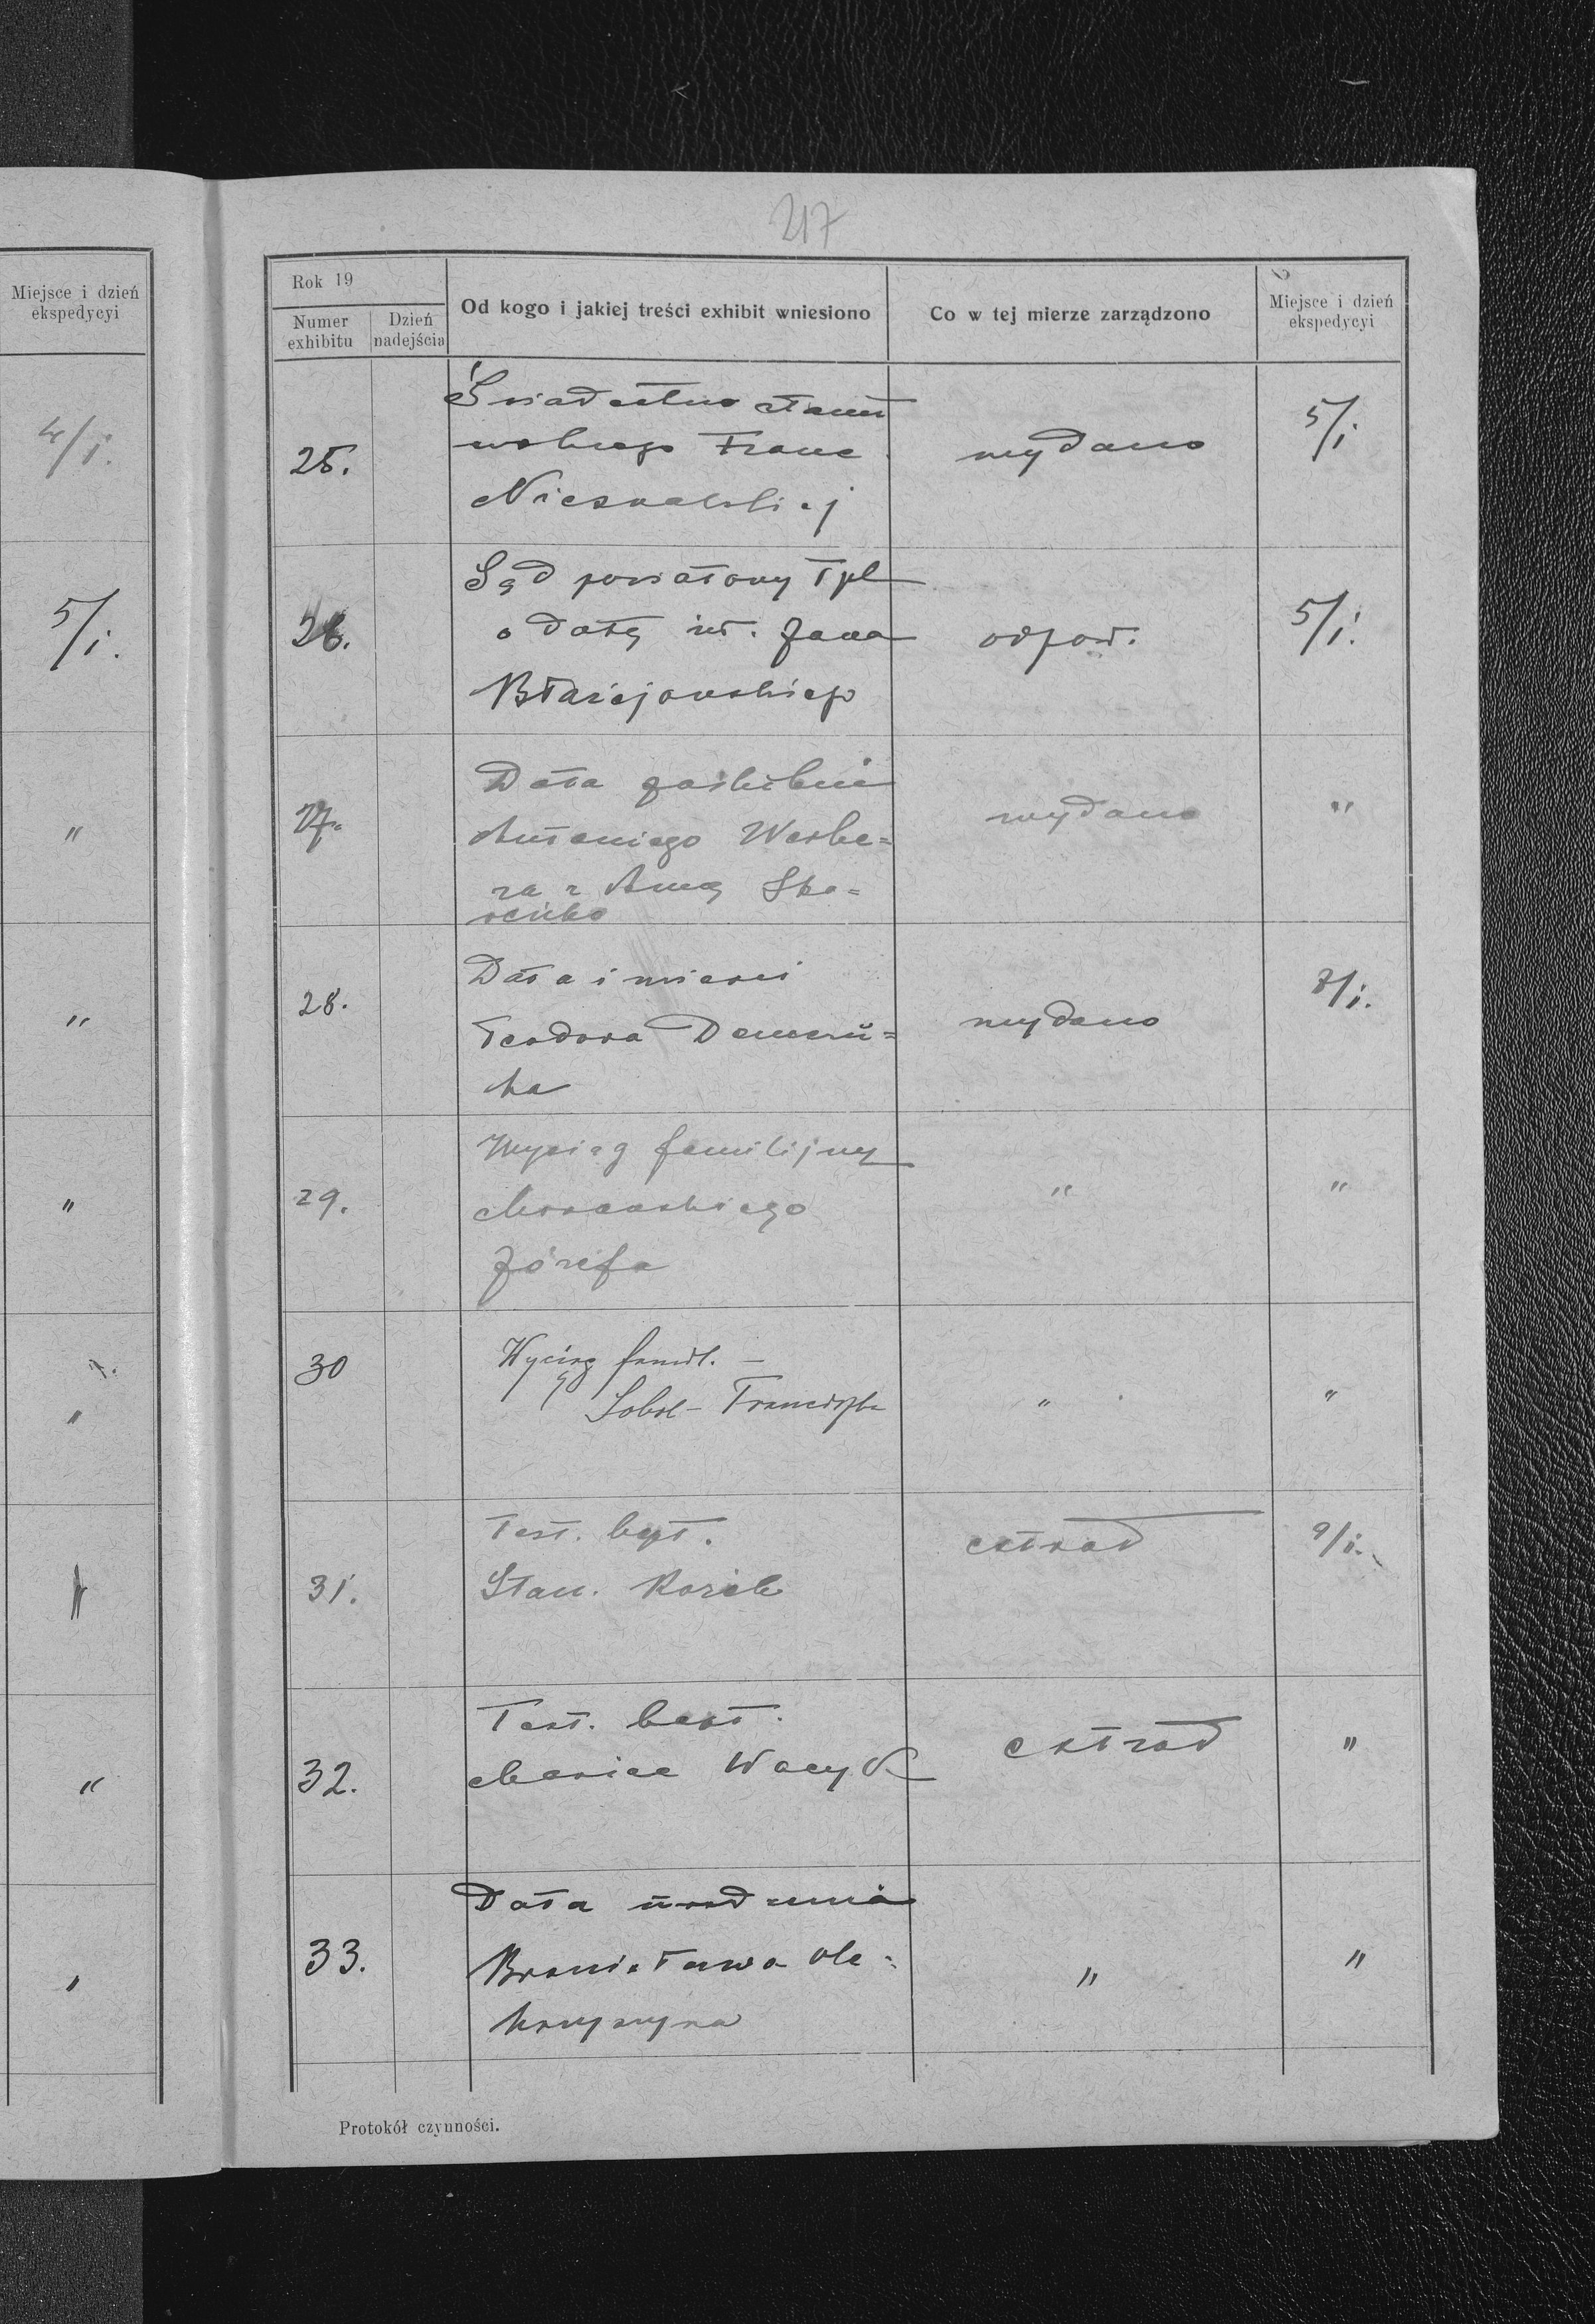 217
Miejsce i dzień
ekspedycyi
4/I.
5/I.
"
"
"
"
"
Rok 19
Numer
exhibitu
Dzień
nadejścia
Od kogo i jakiej treści exhibit wniesiono
Co w tej mierze zarządzono
Miejsce i dzień
ekspedycyi
25.
Świadectwo stanu
wolnego Franc.
wydano
5/I
26.
Sąd powiatowy Tpl
o datę ur. Jana
Błażejowskiego
odpow.
5/I.
27.
Data zaślubin
Antoniego Werbe=
ra z Anną Sko=
wydano
"
28.
Data śmierci
Teodora
wydano
8/I.
29.
Wyciąg familijny
Morawskiego
Józefa
"
"
30
Wyciąg famil. –
Sobol – Franciszka
"
"
31.
Test. bapt.
Stan. Kozik
extrad
9/I.
32.
Test. bapt.
extrad
"
33.
Data urodzenia
Bronisława Ole=
"
"
Protokół czynności.